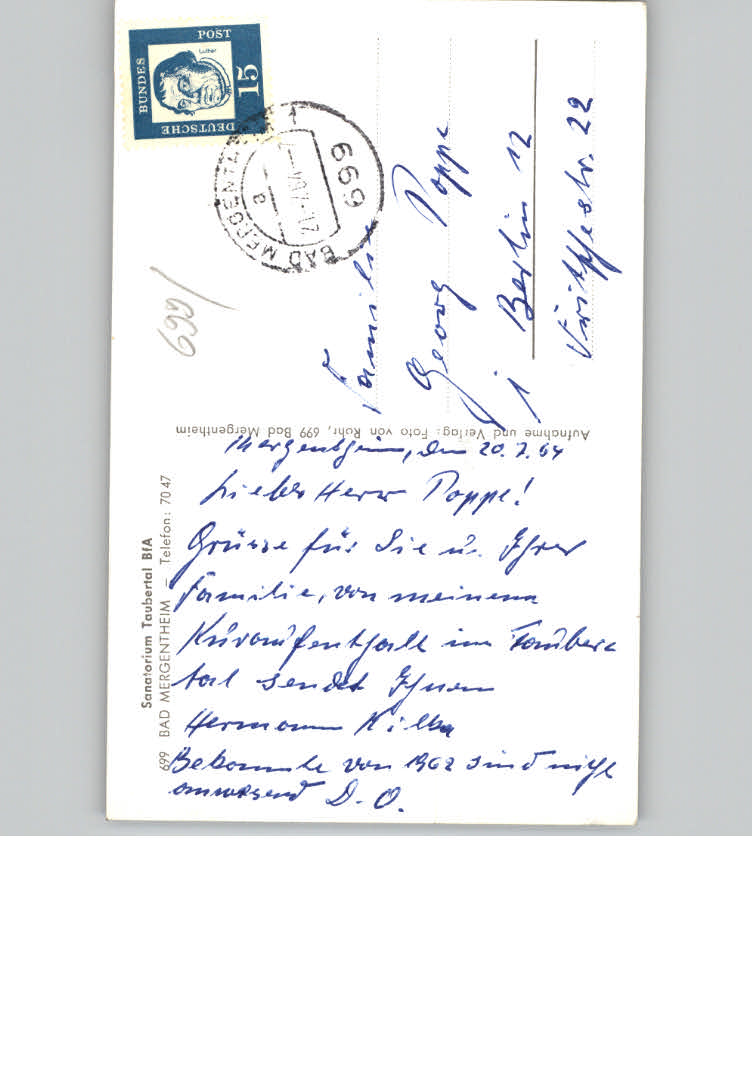 DEUTSCHE
BUNDES
POST
15
Luther
BAD MERGENTHEIM 1
699
21.-7.64
a
699
Familie
Georg Poppe
1 Berlin 12
22
Aufnahme und Verlag: Foto von Rohr, 699 Bad Mergentheim
Sanatorium Taubertal BfA
699 BAD MERGENTHEIM – Telefon: 70 47
Mergentheim, den 20.7.64
Lieber Herr Poppe!
Grüsse für Sie u. Ihrer
Familie, von meinem
Kuraufenthalt im Tauber
tal sendet Ihnen
Hermann
Bekannte von 1962 sind nicht
anwesend D.O.